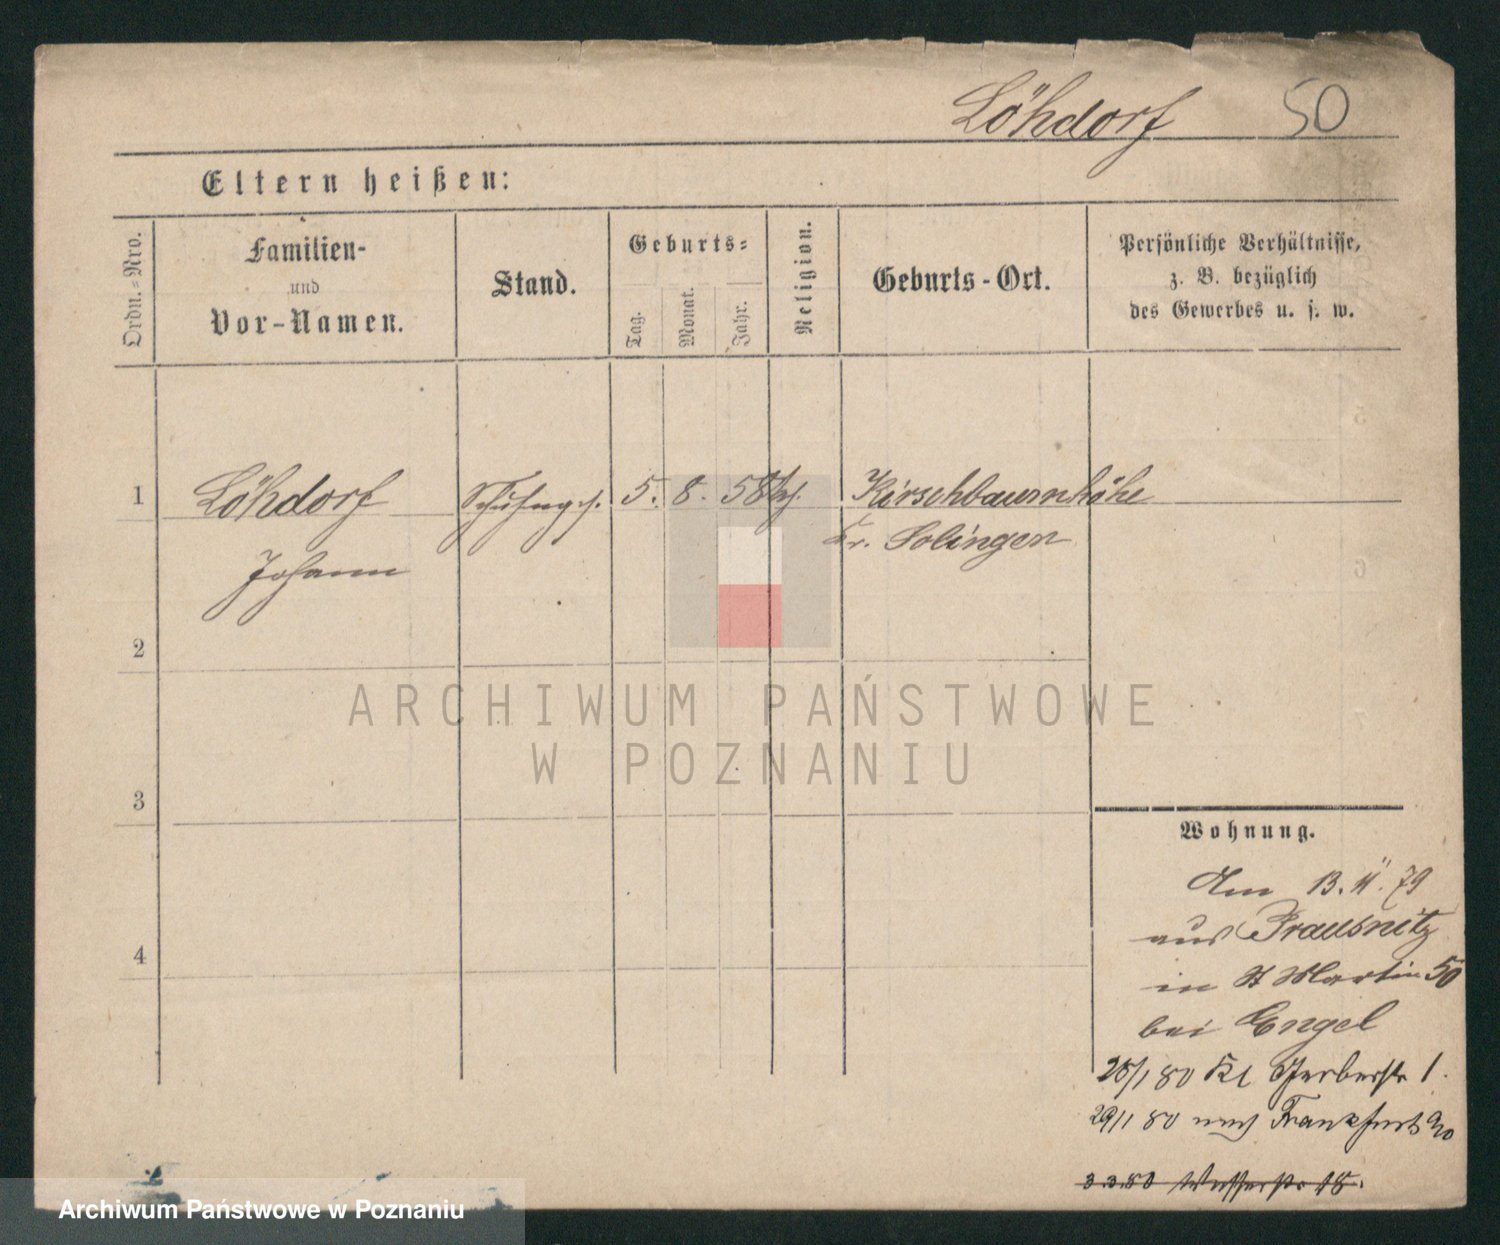 Löhdorf 50
Eltern heißen:
Ordn.-Nro.
Familien-
und
Vor-Namen.
Stand.
Geburts-
Tag.
Monat.
Jahr.
Religion.
Geburts-Ort.
Persönliche Verhältnisse,
z. B. bezüglich
des Gewerbes u. s. w.
1 Löhdorf 5. 8. 58 Kirschbaumhöhe
Johann Kr. Solingen
2
ARCHIWUM PAŃSTWOWE
W POZNANIU
3
Wohnung.
Am 13. 11. 79
aus Prausnitz
4
in St Martin 50
bei Engel
1 80 Kl Gerberstr 1.
29/1 80 nach Frankfurt
3.3.80 Wasserstr 18.
Archiwum Państwowe w Poznaniu